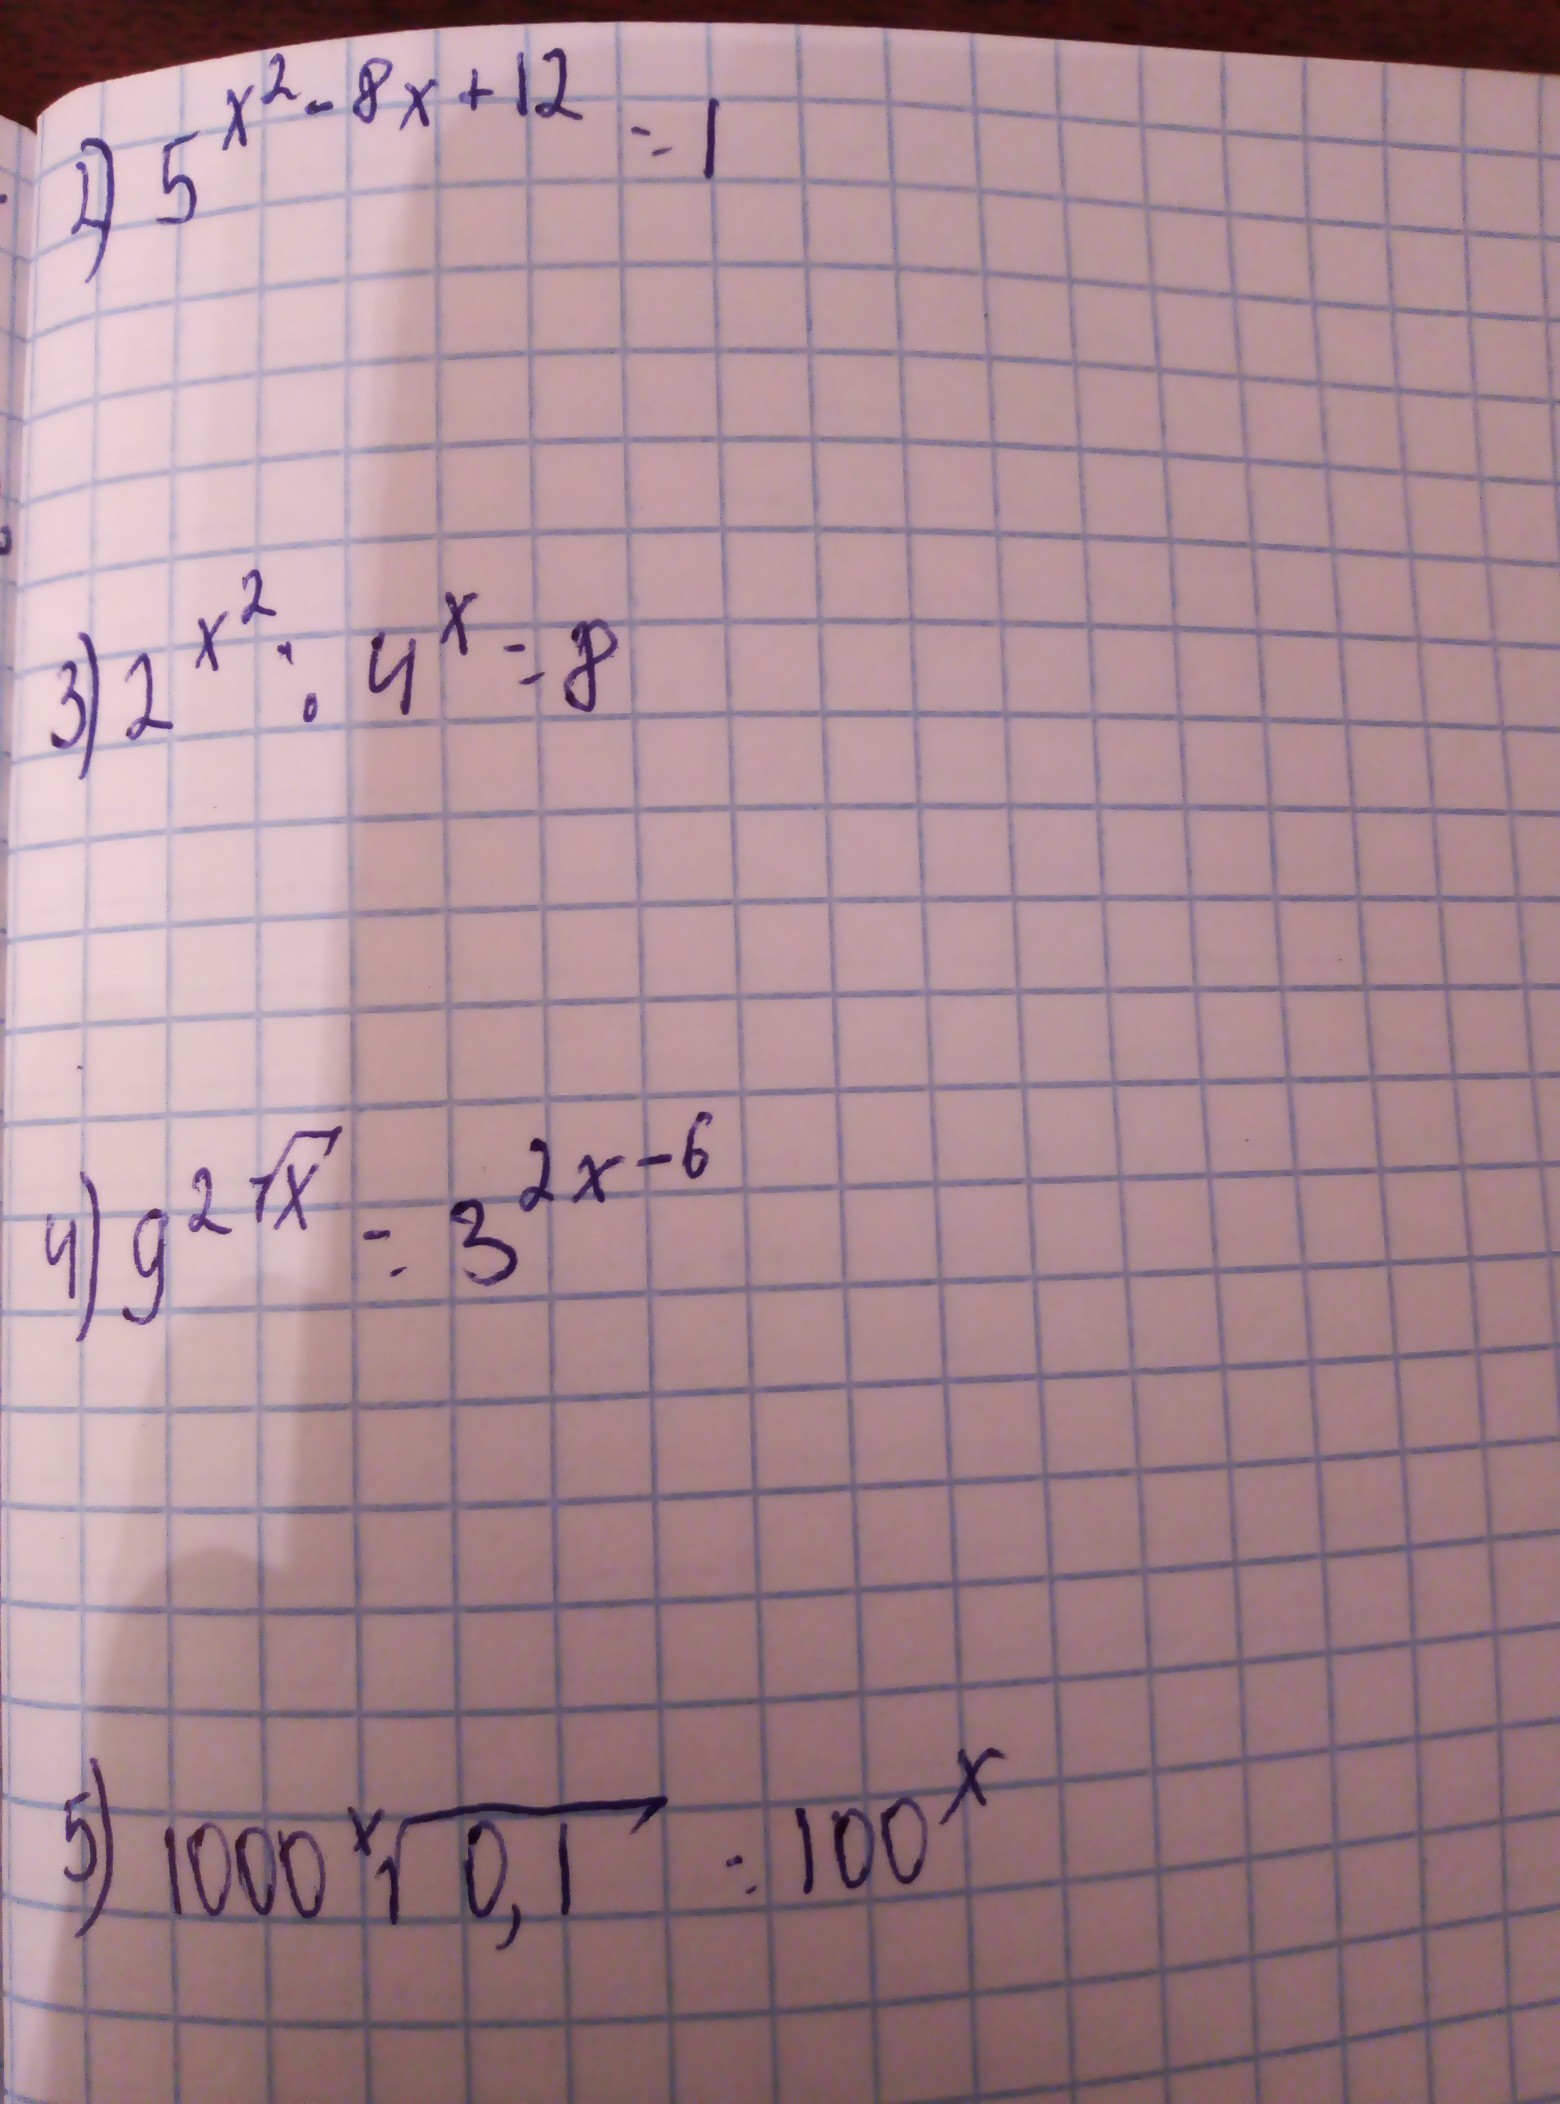 1) 5^{x^2-8x+12} = 1
3) 2^{x^2} : 4^x = 8
4) 9^{2√x} = 3^{2x-6}
5) 1000 ˣ√0,1 = 100^x